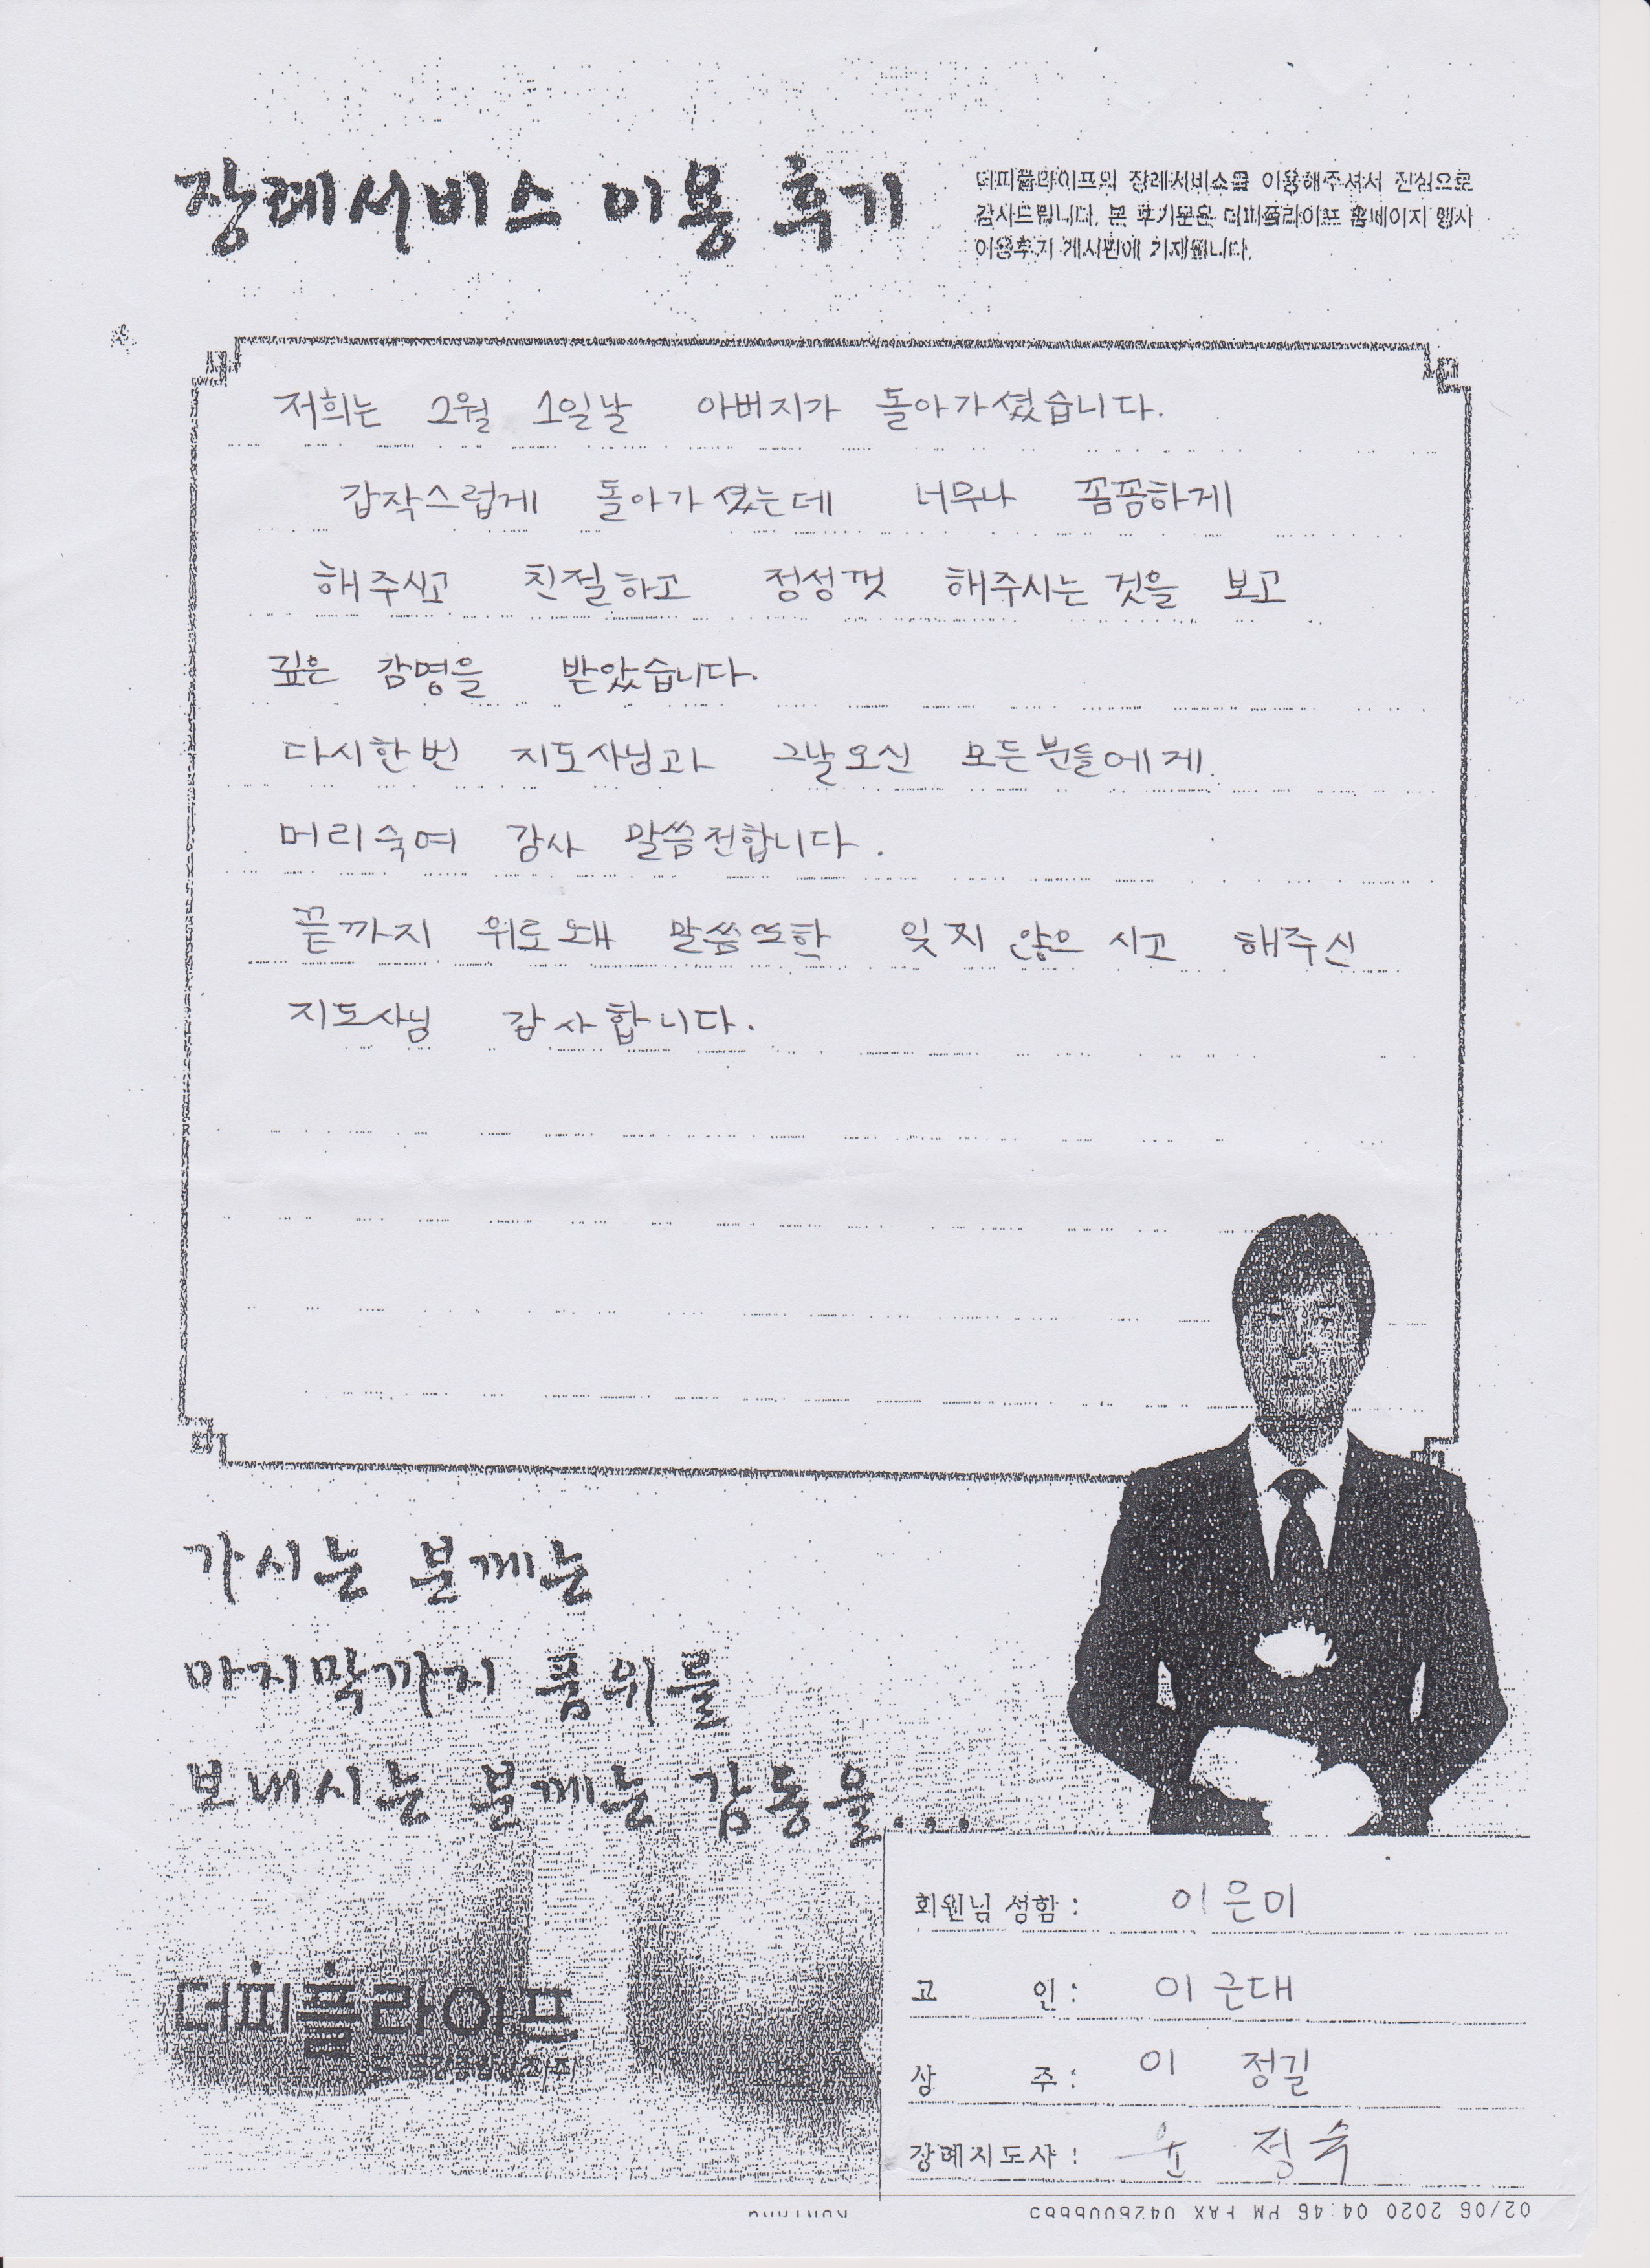 장례서비스 이용 후기
더피플라이프의 장례서비스를 이용해주셔서 진심으로
감사드립니다. 본 후기문은 더피플라이프 홈페이지 행사
이용후기 게시판에 기재됩니다.
저희는 2월 1일날 아버지가 돌아가셨습니다.
갑작스럽게 돌아가셨는데 너무나 꼼꼼하게
해주시고 친절하고 정성껏 해주시는 것을 보고
깊은 감명을 받았습니다.
다시한번 지도사님과 그날오신 모든분들에게
머리숙여 감사 말씀전합니다.
끝까지 위로 말씀또한 잊지 않으시고 해주신
지도사님 감사합니다.
가시는 분께는
마지막까지 품위를
보내시는 분께는 감동을...
더피플라이프
회원님 성함 : 이은미
고 인 : 이근대
상 주 : 이 정길
장례지도사 : 윤 정숙
02/06 2020 04:46 PM FAX